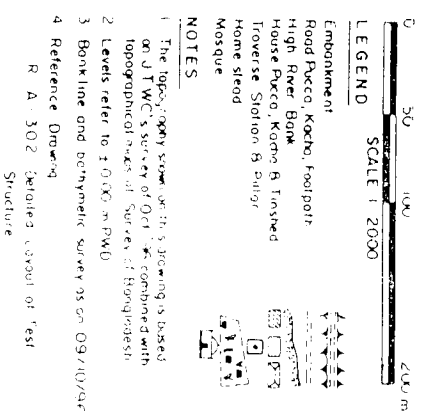 0 50 100 200 m
SCALE 1 : 2000
LEGEND
Embankment
Road Pucca, Kacha, Footpath
High River Bank
House Pucca, Kacha & Tinshed
Traverse Station & Pillar
Home stead
Mosque
NOTES
1 The topography shown on this drawing is based
on JTWC's survey of Oct combined with
topographical maps of Survey of Bangladesh
2 Levels refer to ± 0.00 m PWD
3 Bank line and bathymetric survey as on 09/10/96
4 Reference Drawing
R A - 302 Detailed Layout of Test
Structure